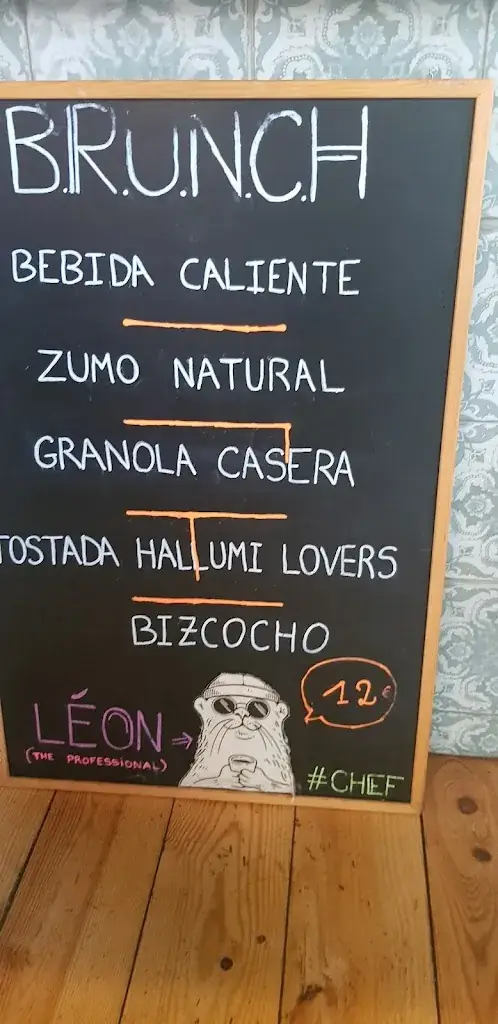 B.R.U.N.C.H
BEBIDA CALIENTE
ZUMO NATURAL
GRANOLA CASERA
TOSTADA HALLUMI LOVERS
BIZCOCHO
12€
LÉON ⇒
(THE PROFESSIONAL)
#CHEF